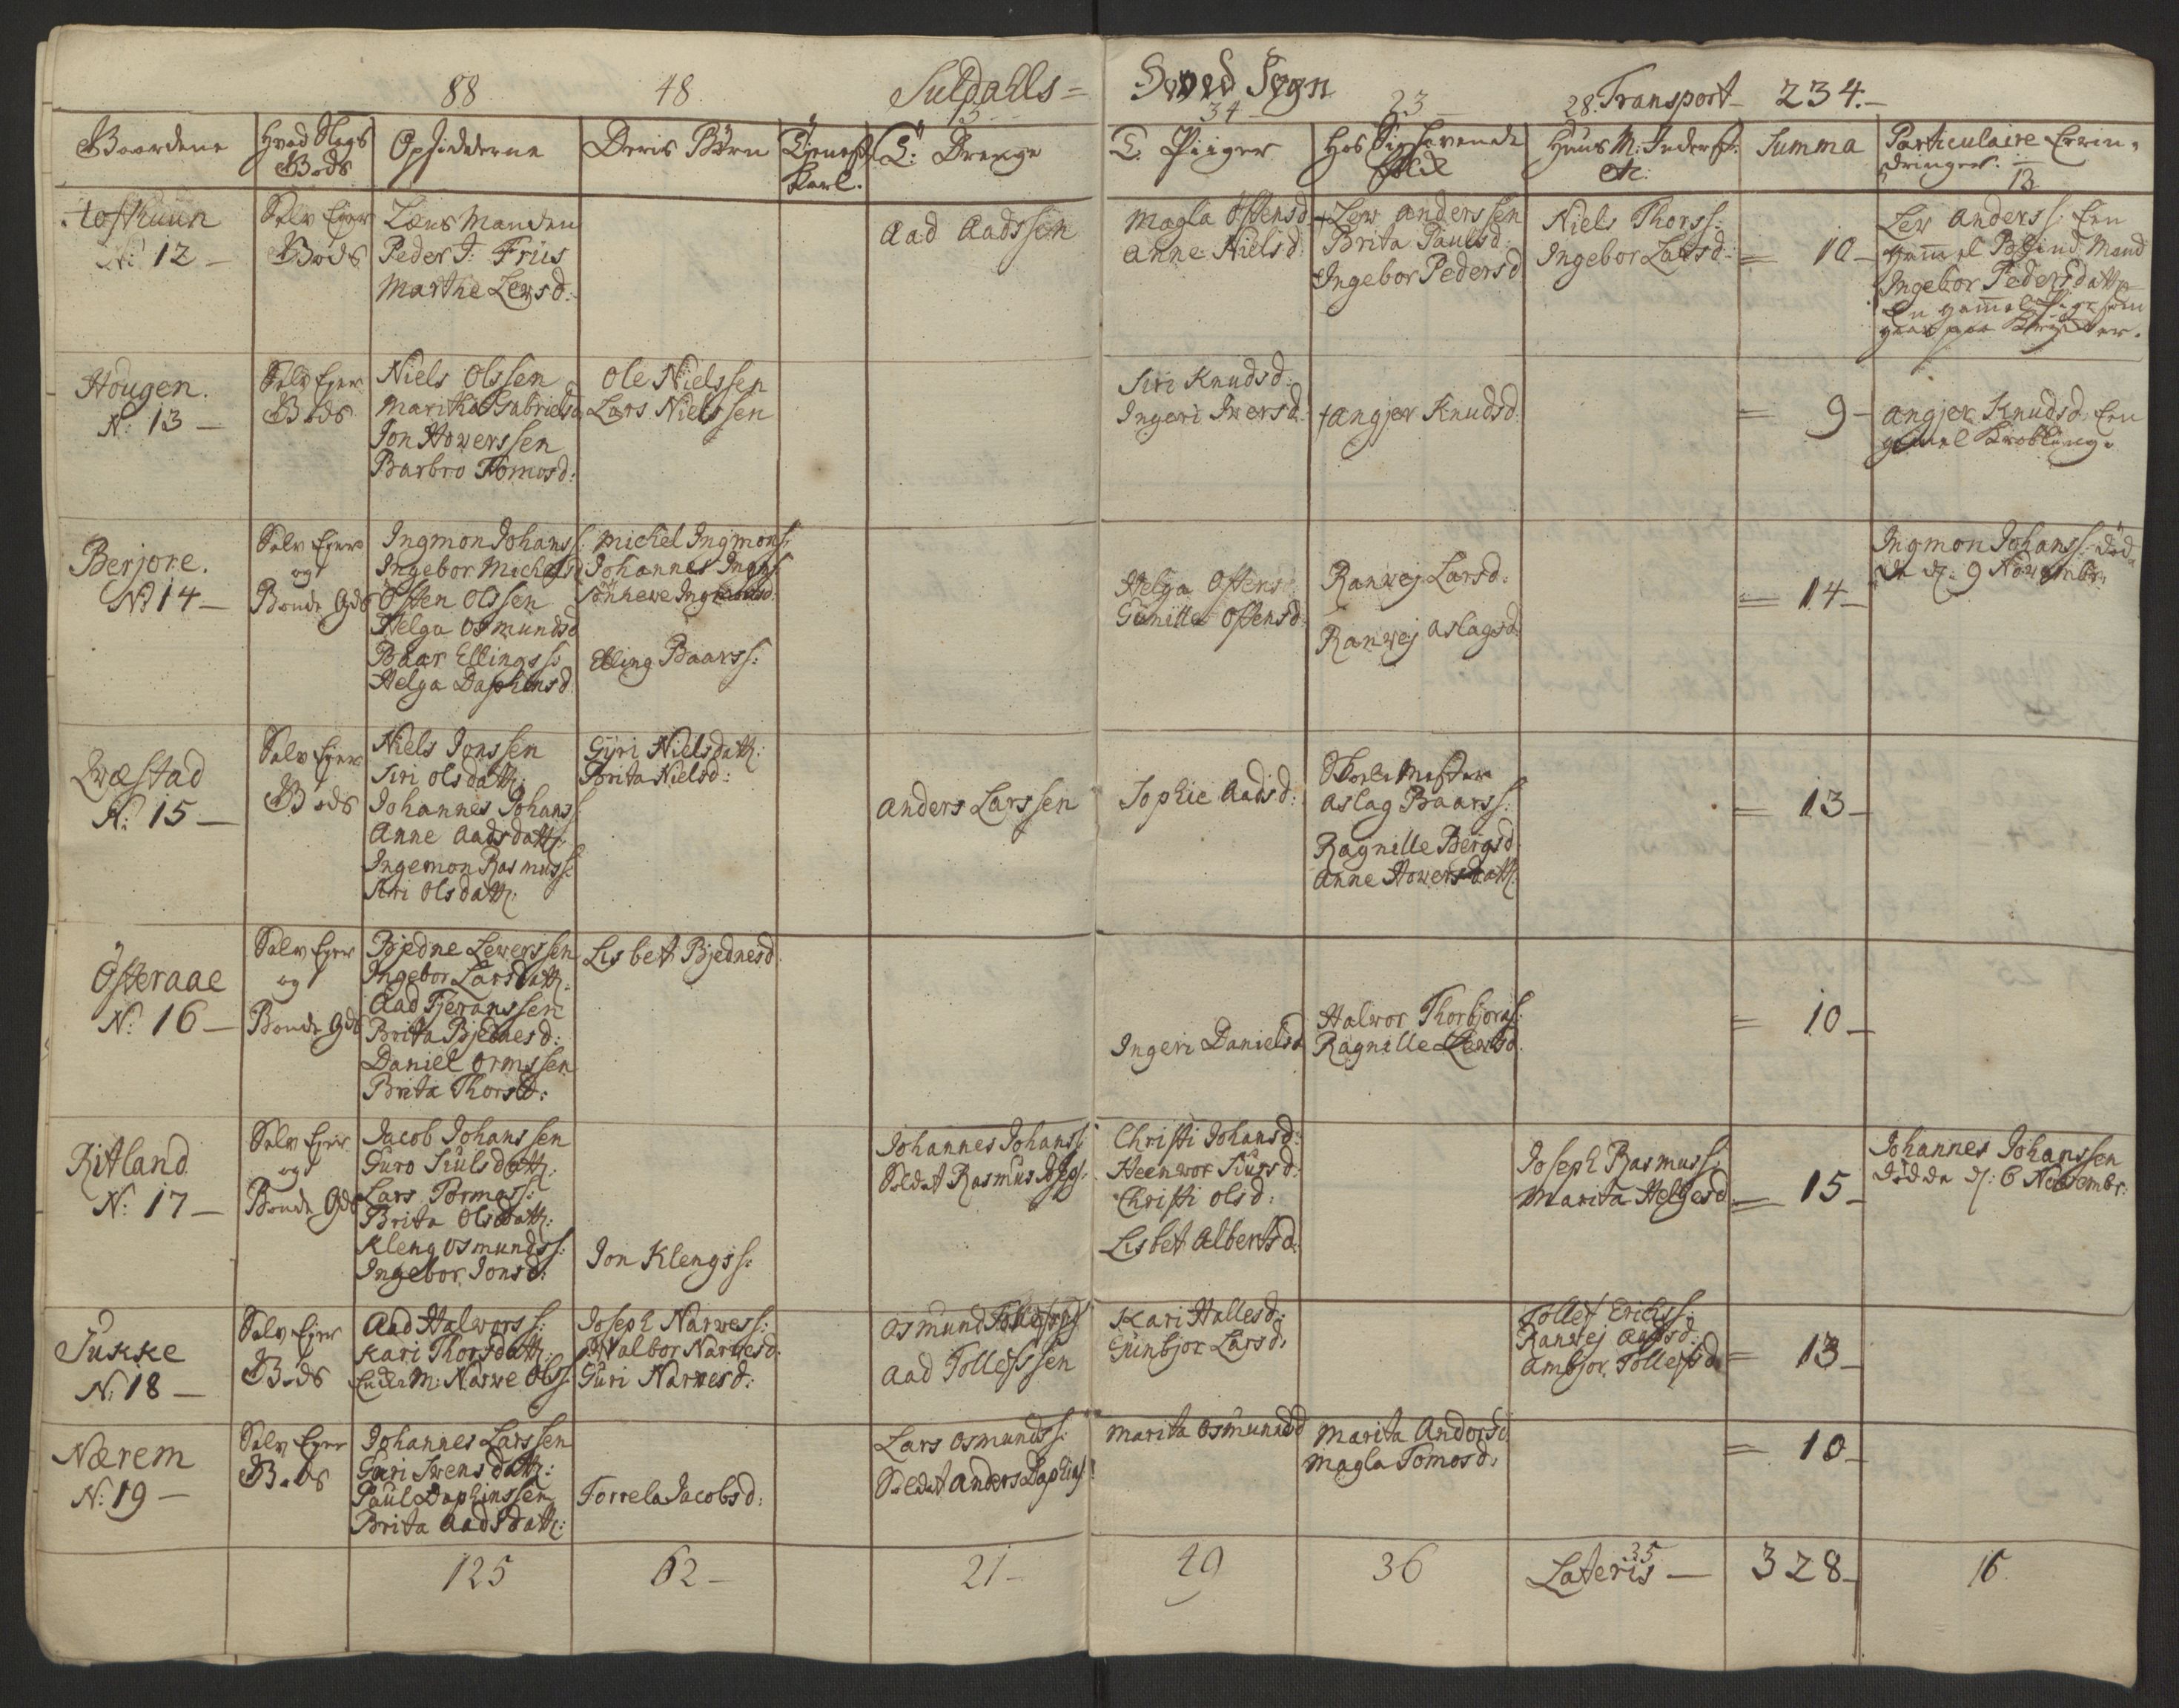 88 48 Suldahls= Hoved Sogn 28. Transport 234.
15 34 23
Gaardene Hvad Slags Gods Opsidderne Deris Börn Tienest Karl. T: Drenge T. Piiger Hos Sig Havende Huus M: Inderst: etc: Summa Particulaire Erindringer. 13
N: 12
Selv Eyer Gods
Lens Manden
Peder J: Friis
Marthe Lewsd:
Aad Aadssen
Magla Østensd
Anne Nielsd:
+Lew Anderssen
Brita Paulsd:
Ingebor Pedersd
Niels Thorss:
Ingebor Larsd:
= 10
Lew Anderss: Een
Ingebor Pedersdatter
Hougen.
N: 13
Selv Eyer Gods
Niels Olssen
Maritha Gabrielsd
Jon Howerssen
Barbro Tomosd:
Ole Nielssen
Lars Nielssen
Siri Knudsd:
Ingeri Iwersd:
+Angjer Knudsd:
= 9
Angjer Knudsd. Een
gamel Krobling.
Berjore.
N: 14
Selv Eyer
og
Bonde Gds
Ingmon Johanss:
Ingebor Michelsd
Østen Olssen
Helga Osmundsd
Baar Ellingss:
Helga Daphinsd
Michel Ingmons:
Johannes Ingms
Sönnewe Ingmonsd:
Elling Baarss:
Helga Østens
Gunille Østensd:
Ranwej Larsd:
Ranwej Aslagsd:
= 14
Ingmon Johanss: död
de d: 9 Nowembr:
Qwæstad
N: 15
Selv Eyer
Gods
Niels Jonssen
Siri Olsdatt:
Johannes Johanss
Anne Aadsdatt:
Ingemon Rasmuss:
Siri Olsdatt:
Gyri Nielsdatt:
Brita Nielsd:
Anders Larssen
Sophie Aadsd:
Skole Mester
Aslag Baarss:
Ragnille Bergsd:
Anne Howersdatt:
= 13
Østeraae
N: 16
Selv Eyer
og
Bonde Gds
Bjedne Lewerssen
Ingebor Larsdatt:
Aad Tjeranssen
Brita Bjednesd:
Daniel Ormssen
Brita Thorsd:
Lisbet Bjednesd:
Ingeri Danielsd
Halwor Thorbjorns:
Ragnille Lewsd:
= 10
Ritland
N: 17
Selv Eyer
og
Bonde Gds
Jacob Johanssen
Guro Siulsdatt:
Lars Tormoss:
Brita Olsdatt:
Kleng Osmundss:
Ingebor Jonsd:
Jon Klengss:
Johannes Johanss:
Soldat Rasmus Josps:
Christi Johansd:
Heenwor Siursd:
Christi Olsd:
Lisbet Albertsd:
Joseph Rasmuss:
Marita Helgesd
= 15
Johannes Johanssen
dödde d: 6 Novembr:
Sukke
N: 18
Selv Eyer
Gods
Aad Halworss:
Kari Thorsdatt:
Encke M: Narwe Olss:
Joseph Narwess:
Walbor Narwesd:
Guri Narwesd:
Osmund Tollefsens
Aad Tollefssen
Kari Hallesd:
Gunbjor Larsd:
Tollef Erichss:
Ranwej Aadsd:
Ambjor Tollefsd
= 13
Nærem
N: 19
Selv Eyer
Gods
Johannes Larssen
Guri Swensdatt:
Paul Daphinssen
Brita Aadsdatt:
Torrela Jacobsd:
Lars Osmundss:
Soldat Anders Daphins
Marita Osmundsd
Marita Andorsd
Magla Tomosd:
= 10
125 62 21 49 36 35 Lateris 328 16